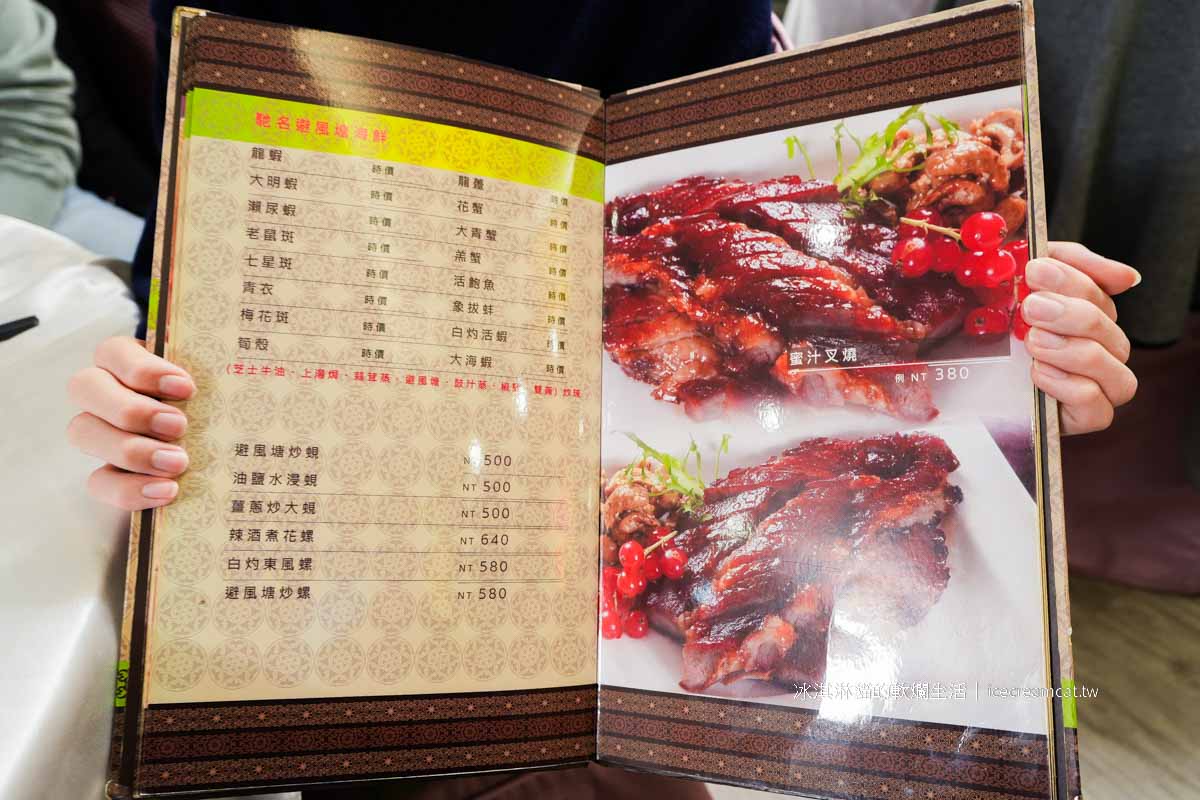 馳名避風塘海鮮
龍蝦 時價
大明蝦 時價
瀨尿蝦 時價
老鼠斑 時價
七星斑 時價
青衣 時價
梅花斑 時價
筍殼 時價
龍躉 時價
花蟹 時價
大青蟹 時價
羔蟹 時價
活鮑魚 時價
象拔蚌 時價
白灼活蝦 時價
大海蝦 時價
(芝士牛油、上湯焗、蒜茸蒸、避風塘、豉汁蒸、椒鹽、雙黃)
避風塘炒蜆 NT 500
油鹽水浸蜆 NT 500
薑蔥炒大蜆 NT 500
辣酒煮花螺 NT 640
白灼東風螺 NT 580
避風塘炒螺 NT 580
蜜汁叉燒
例 NT 380
冰淇淋貓的軟爛生活｜icecreamcat.tw